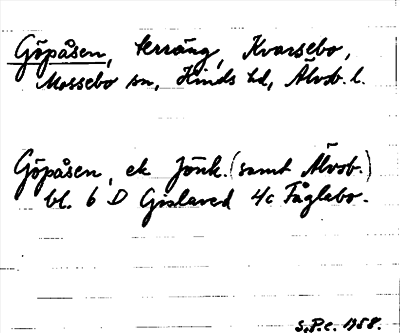 Göpåsen, terräng, Kvarsebo,
Mossebo sn, Kinds hd, Älvsb. l.
Göpåsen, ek Jönk. (samt Älvsb.)
bl. 6 D Gislaved 4c Fåglebo.
S.P.C. 1958.